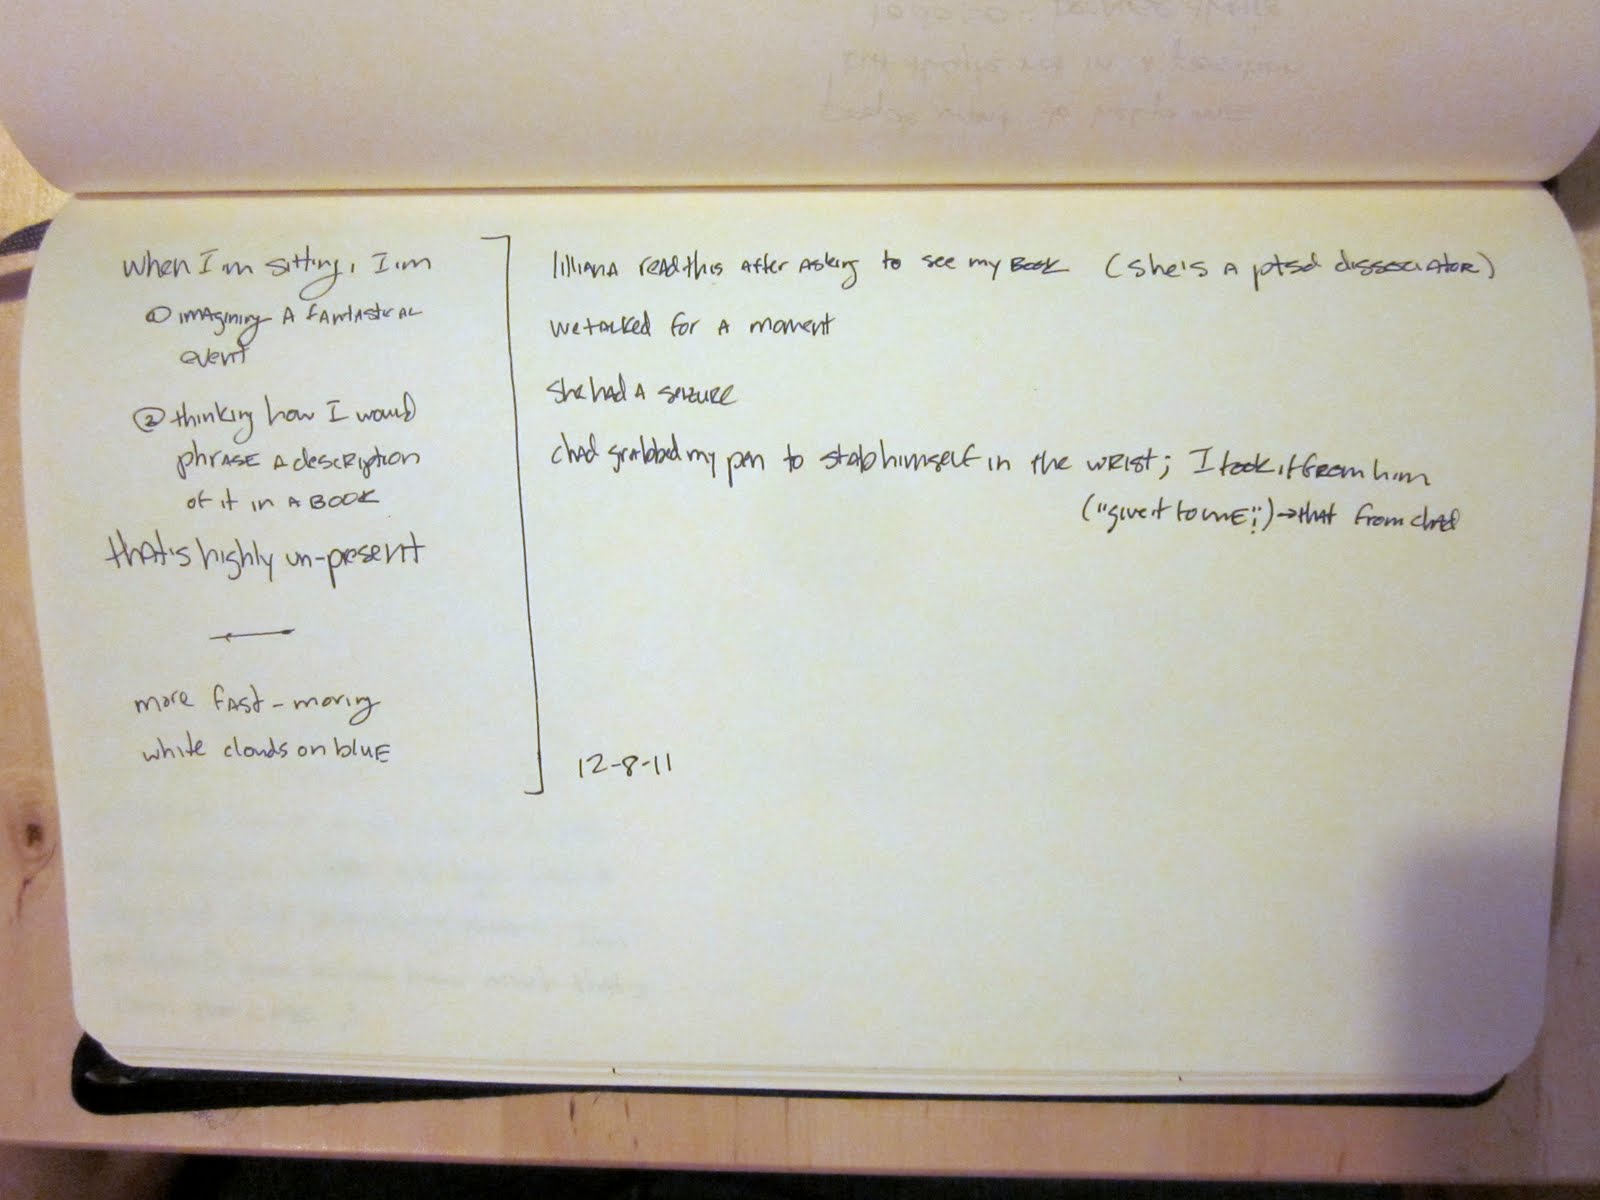 when I'm sitting, I'm
① imagining a fantastical
event
② thinking how I would
phrase a description
of it in a book
that's highly un-present
more fast-moving
white clouds on blue
lilliana read this after asking to see my book (she's a ptsd dissociator)
we talked for a moment
she had a seizure
chad grabbed my pen to stab himself in the wrist; I took it from him
("give it to me!") → that from chad
12-8-11